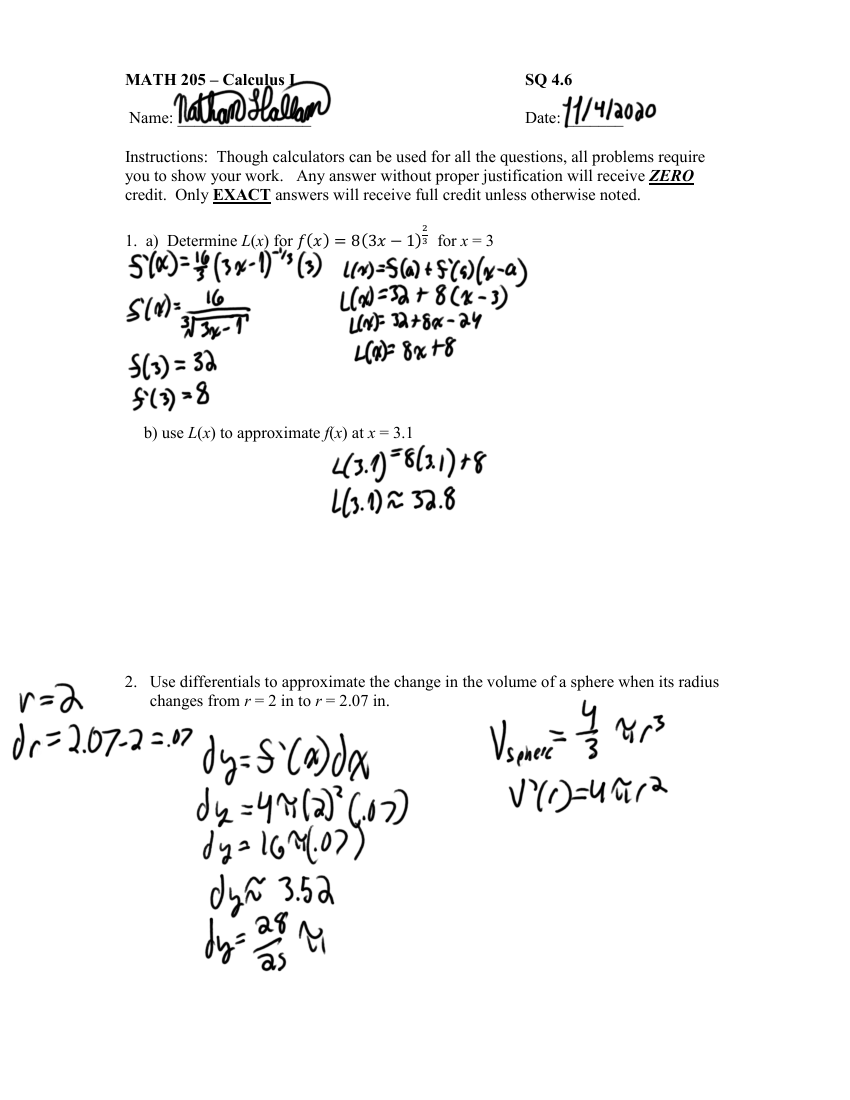 MATH 205 – Calculus I
SQ 4.6
Name: Nathan Hallam
Date: 11/4/2020
Instructions: Though calculators can be used for all the questions, all problems require
you to show your work. Any answer without proper justification will receive ZERO
credit. Only EXACT answers will receive full credit unless otherwise noted.
1. a) Determine L(x) for f(x) = 8(3x − 1)^(2/3) for x = 3
f'(x) = 16/3 (3x-1)^(-1/3) (3)
f'(x) = 16/∛(3x-1)
f(3) = 32
f'(3) = 8
L(x) = f(a) + f'(a)(x-a)
L(x) = 32 + 8(x-3)
L(x) = 32 + 8x - 24
L(x) = 8x + 8
b) use L(x) to approximate f(x) at x = 3.1
L(3.1) = 8(3.1) + 8
L(3.1) ≈ 32.8
2. Use differentials to approximate the change in the volume of a sphere when its radius
changes from r = 2 in to r = 2.07 in.
r = 2
dr = 2.07-2 = .07
dy = f'(x)dx
dy = 4π(2)²(.07)
dy = 16π(.07)
dy ≈ 3.52
dy = 28/25 π
V sphere = 4/3 πr³
V'(r) = 4πr²